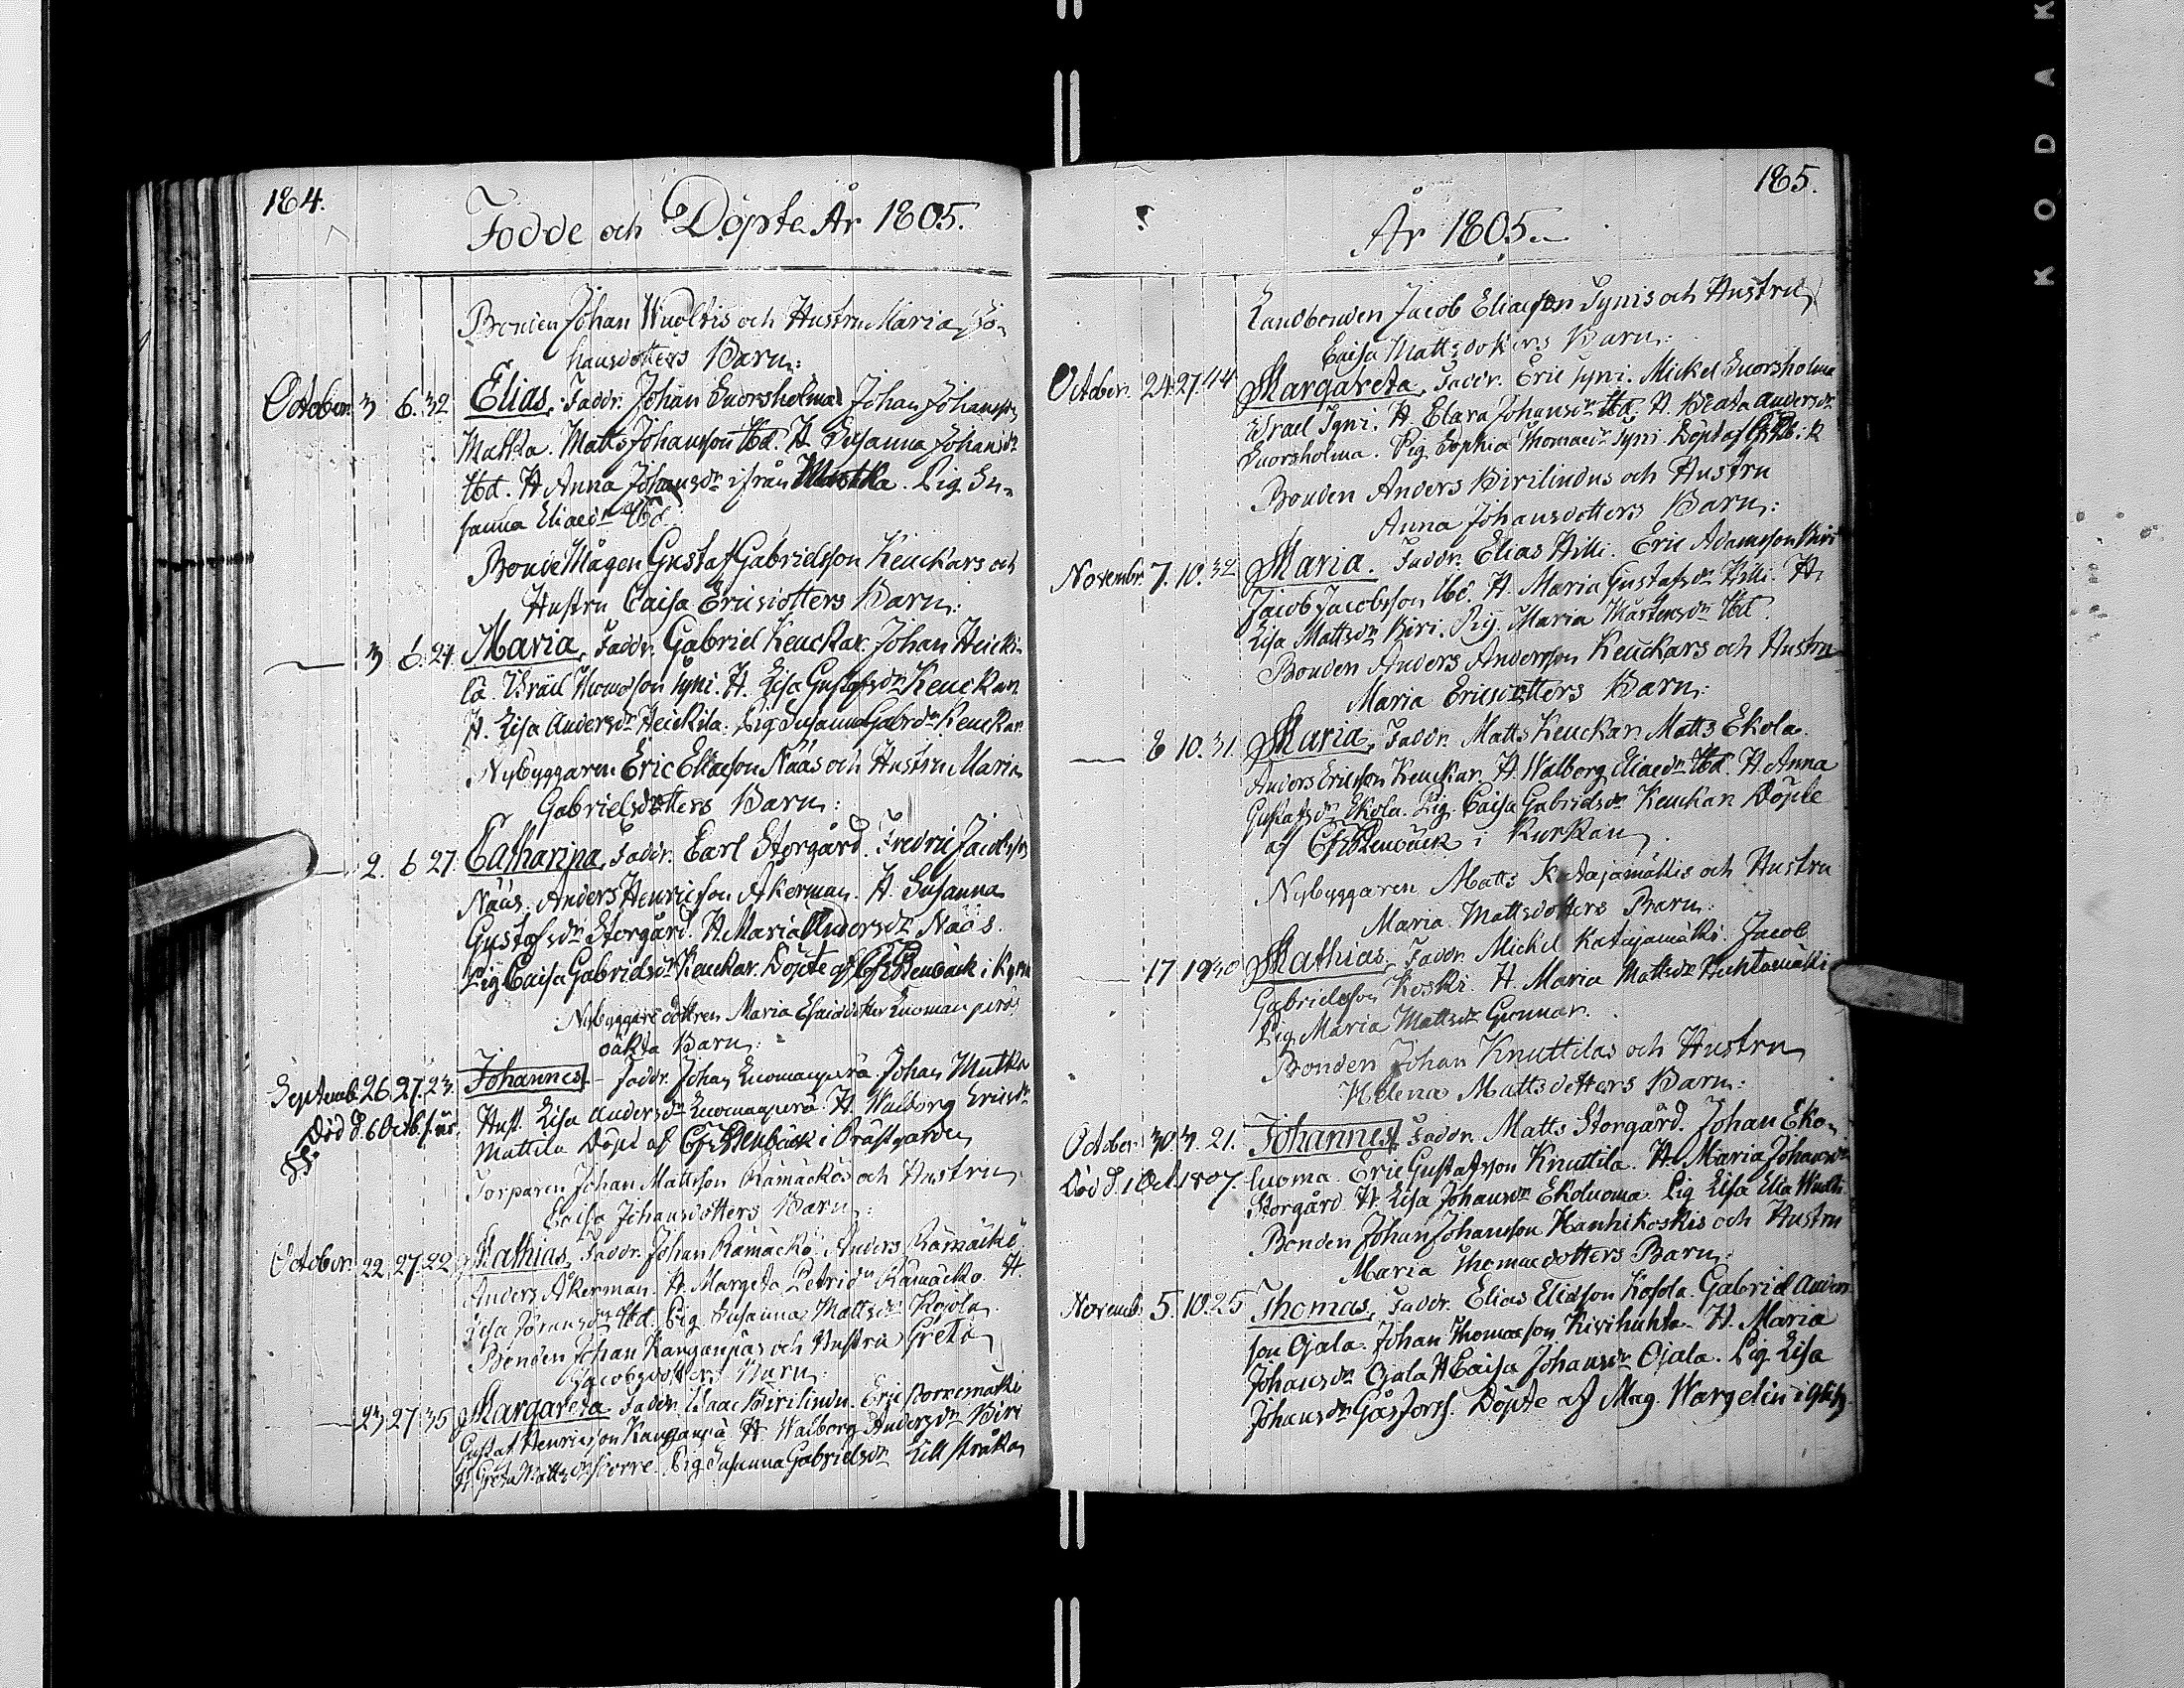 184.
Födde och Döpte År 1805.
Bonden Johan Wuoltis och Hustru Maria Jo-
hansdotters Barn:
October. 3 6. 32 Elias. Faddr. Johan Johansson
Mattla. Matts Johansson Ibd. H. Susanna Johansdr
Ibd. H Anna Johansdr ifrån . Pig. Su-
sanna Eliaedr Ibd.
Bonde Mågen Gustaf Gabrielsson Keuckars och
Hustru Caisa Ericsdotters Barn:
3 6. 24. Maria. Faddr. Gabriel Keuckar. Johan Heicki-
lä. Israel Thomasson Syni. H. Lisa Gustafsdr Keuckar
H. Lisa Andersdr Heickilä. Pig Susanna Gabrdr Keuckar.
Nybyggaren Eric Eliaeson Nääs och Hustru Maria
Gabrielsdotters Barn:
2. 6 27. Catharina. Faddr. Carl Storgård. Fredric Jacobsson
Nääs. Anders Henricsson Åkerman. H. Susanna
Gustafsdr Storgård. H Maria Andersdr Nääs.
Pig Caisa Gabrielsdr Keuckar. Döpte af i Kyrk
Nybyggaredottren Maria Esaiædotter Luomanperäs
oäkta Barn:
Septemb. 26. 27. 23. Johannes. Faddr. Johan Luomanperä. Johan Mutka
Död d. 6 Octob. s. år. Hust. Lisa Andersdr Luomanperä. H. Walborg Ericsdr
Mattila Döpt af i Prästgården
Torparen Johan Mattsson Rämäckös och Hustru
Caisa Johansdotters Barn:
October. 22. 27. 22 Mathias. Faddr. Johan Rämäckö. Anders Rämäckö
Anders Åkerman. H. Margeta Petridr Rämäckö. H.
Lisa Ibd. Pig. Susanna Mattsdr Rojola
Bonden Johan Kanganpäs och Hustru Greta
Jacobsdotters Barn:
23 27 35 Margareta. Faddr. Isaac Birilindu. Eric Porremäki
Gustaf Henricsson Kanganpä. H. Walborg Andersdr Biri
H. Greta Mattsdr Porre. Pig Susanna Gabrielsdr Lill stråka
185.
År 1805.
Landbonden Jacob Eliaeson Synis och Hustru
Caisa Mattsdotters Barn:
October. 24. 27. 44. Margareta. Faddr. Eric Syni. Mickel Luorsholma
Israel Syni. H. Clara Johansdr Ibd. H. Beata Andersdr
Luorsholma. Pig. Sophia Thomaedr Syni. Döpt af
Bonden Anders Birilindus och Hustru
Anna Johansdotters Barn:
Novembr. 7. 10. 32 Maria. Faddr. Elias Hilli. Eric Adamsson Biri
Jacob Jacobsson Ibd. H. Maria Gustafsdr Hilli. H.
Lisa Mattsdr Biri. Pig. Maria Mårtensdr Ibd.
Bonden Anders Andersson Keuckars och Hustru
Maria Ericsdotters Barn:
8 10. 31. Maria. Faddr. Matts Keuckar. Matts Ekola.
Anders Ericsson Keuckar. H. Walborg Eliaedr Ibd. H. Anna
Gustafsdr Ekola. Pig. Caisa Gabrielsdr Keuckar Döpte
af i Kyrkan
Nybyggaren Matts Katajamäkis och Hustru
Maria Mattsdotters Barn:
17 19 30 Mathias. Faddr. Mickel Katajamäki. Jacob
Gabrielsson Koski. H. Maria Mattsdr Huhtamäki
Pig Maria Mattsdr Gunnar.
Bonden Johan Knuttilas och Hustru
Helena Mattsdotters Barn:
October. 30. 3. 21. Johannes. Faddr. Matts Storgård. Johan Eko-
Död d. 1 Oct. 1807. luoma. Eric Gustafsson Knuttila. H. Maria Johansdr
Storgård. H. Lisa Johansdr Ekoluoma. Pig Lisa Elia
Bonden Johan Johansson Hanhikoskis och Hustru
Maria Thomaedotters Barn:
Novemb. 5. 10. 25 Thomas. Faddr. Elias Eliæson Kosola. Gabriel Anders
son Ojala. Johan Thomaeson Kivihuhta. H. Maria
Johansdr Ojala H Caisa Johansdr Ojala. Pig Lisa
Johansdr Gåsfors. Döpte af Mag. Wargelin i
KODAK